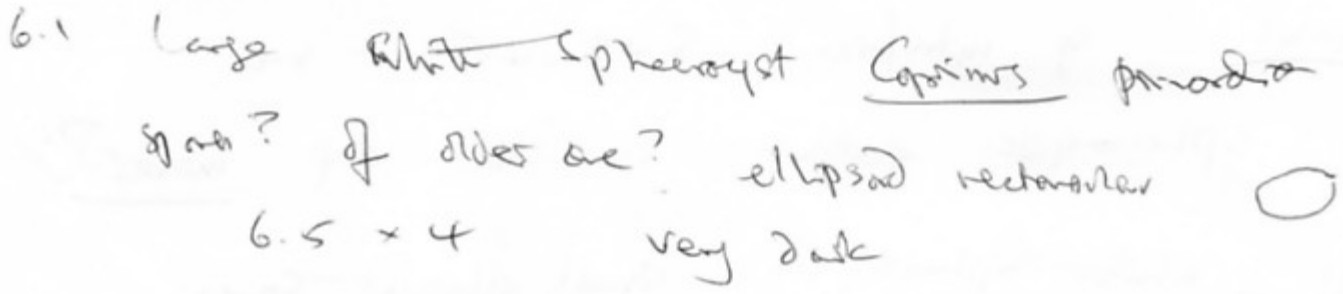 6.1 Large white sphaerocyst Coprinus primordia
spores? of older one? ellipsoid rectangular
6.5 × 4 very dark